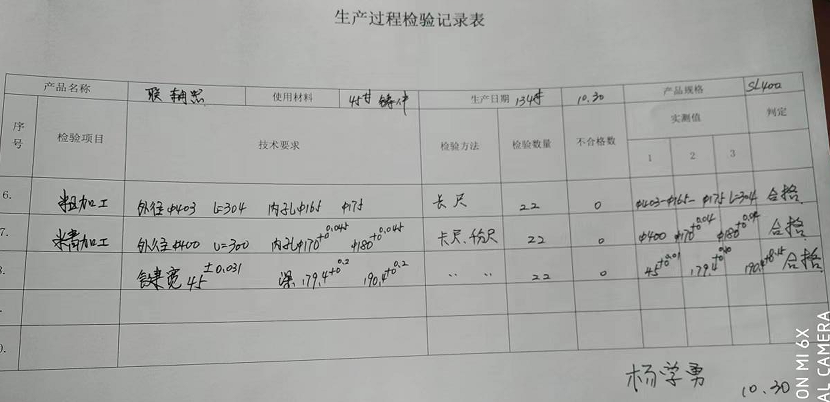 生产过程检验记录表
产品名称 联轴器 使用材料 45# 铸件 生产日期 10.30 产品规格 SL400
序号 检验项目 技术要求 检验方法 检验数量 不合格数 实测值 判定
1 2 3
6. 粗加工 外径φ403 L=304 内孔φ165 φ175 卡尺 22 0 φ403-φ165-φ175 L=304 合格
7. 精加工 外径φ400 L=300 内孔φ170+0.045 0 φ180+0.045 0 卡尺.千分尺 22 0 φ400 φ170+0.04 0 φ180+0.04 0 合格
键宽45±0.031 深179.4+0.2 0 190.4+0.2 0 〃 〃 22 0 45+0.01 179.4 190.4 合格
杨学勇 10.30
ON MI 6X
AL CAMERA